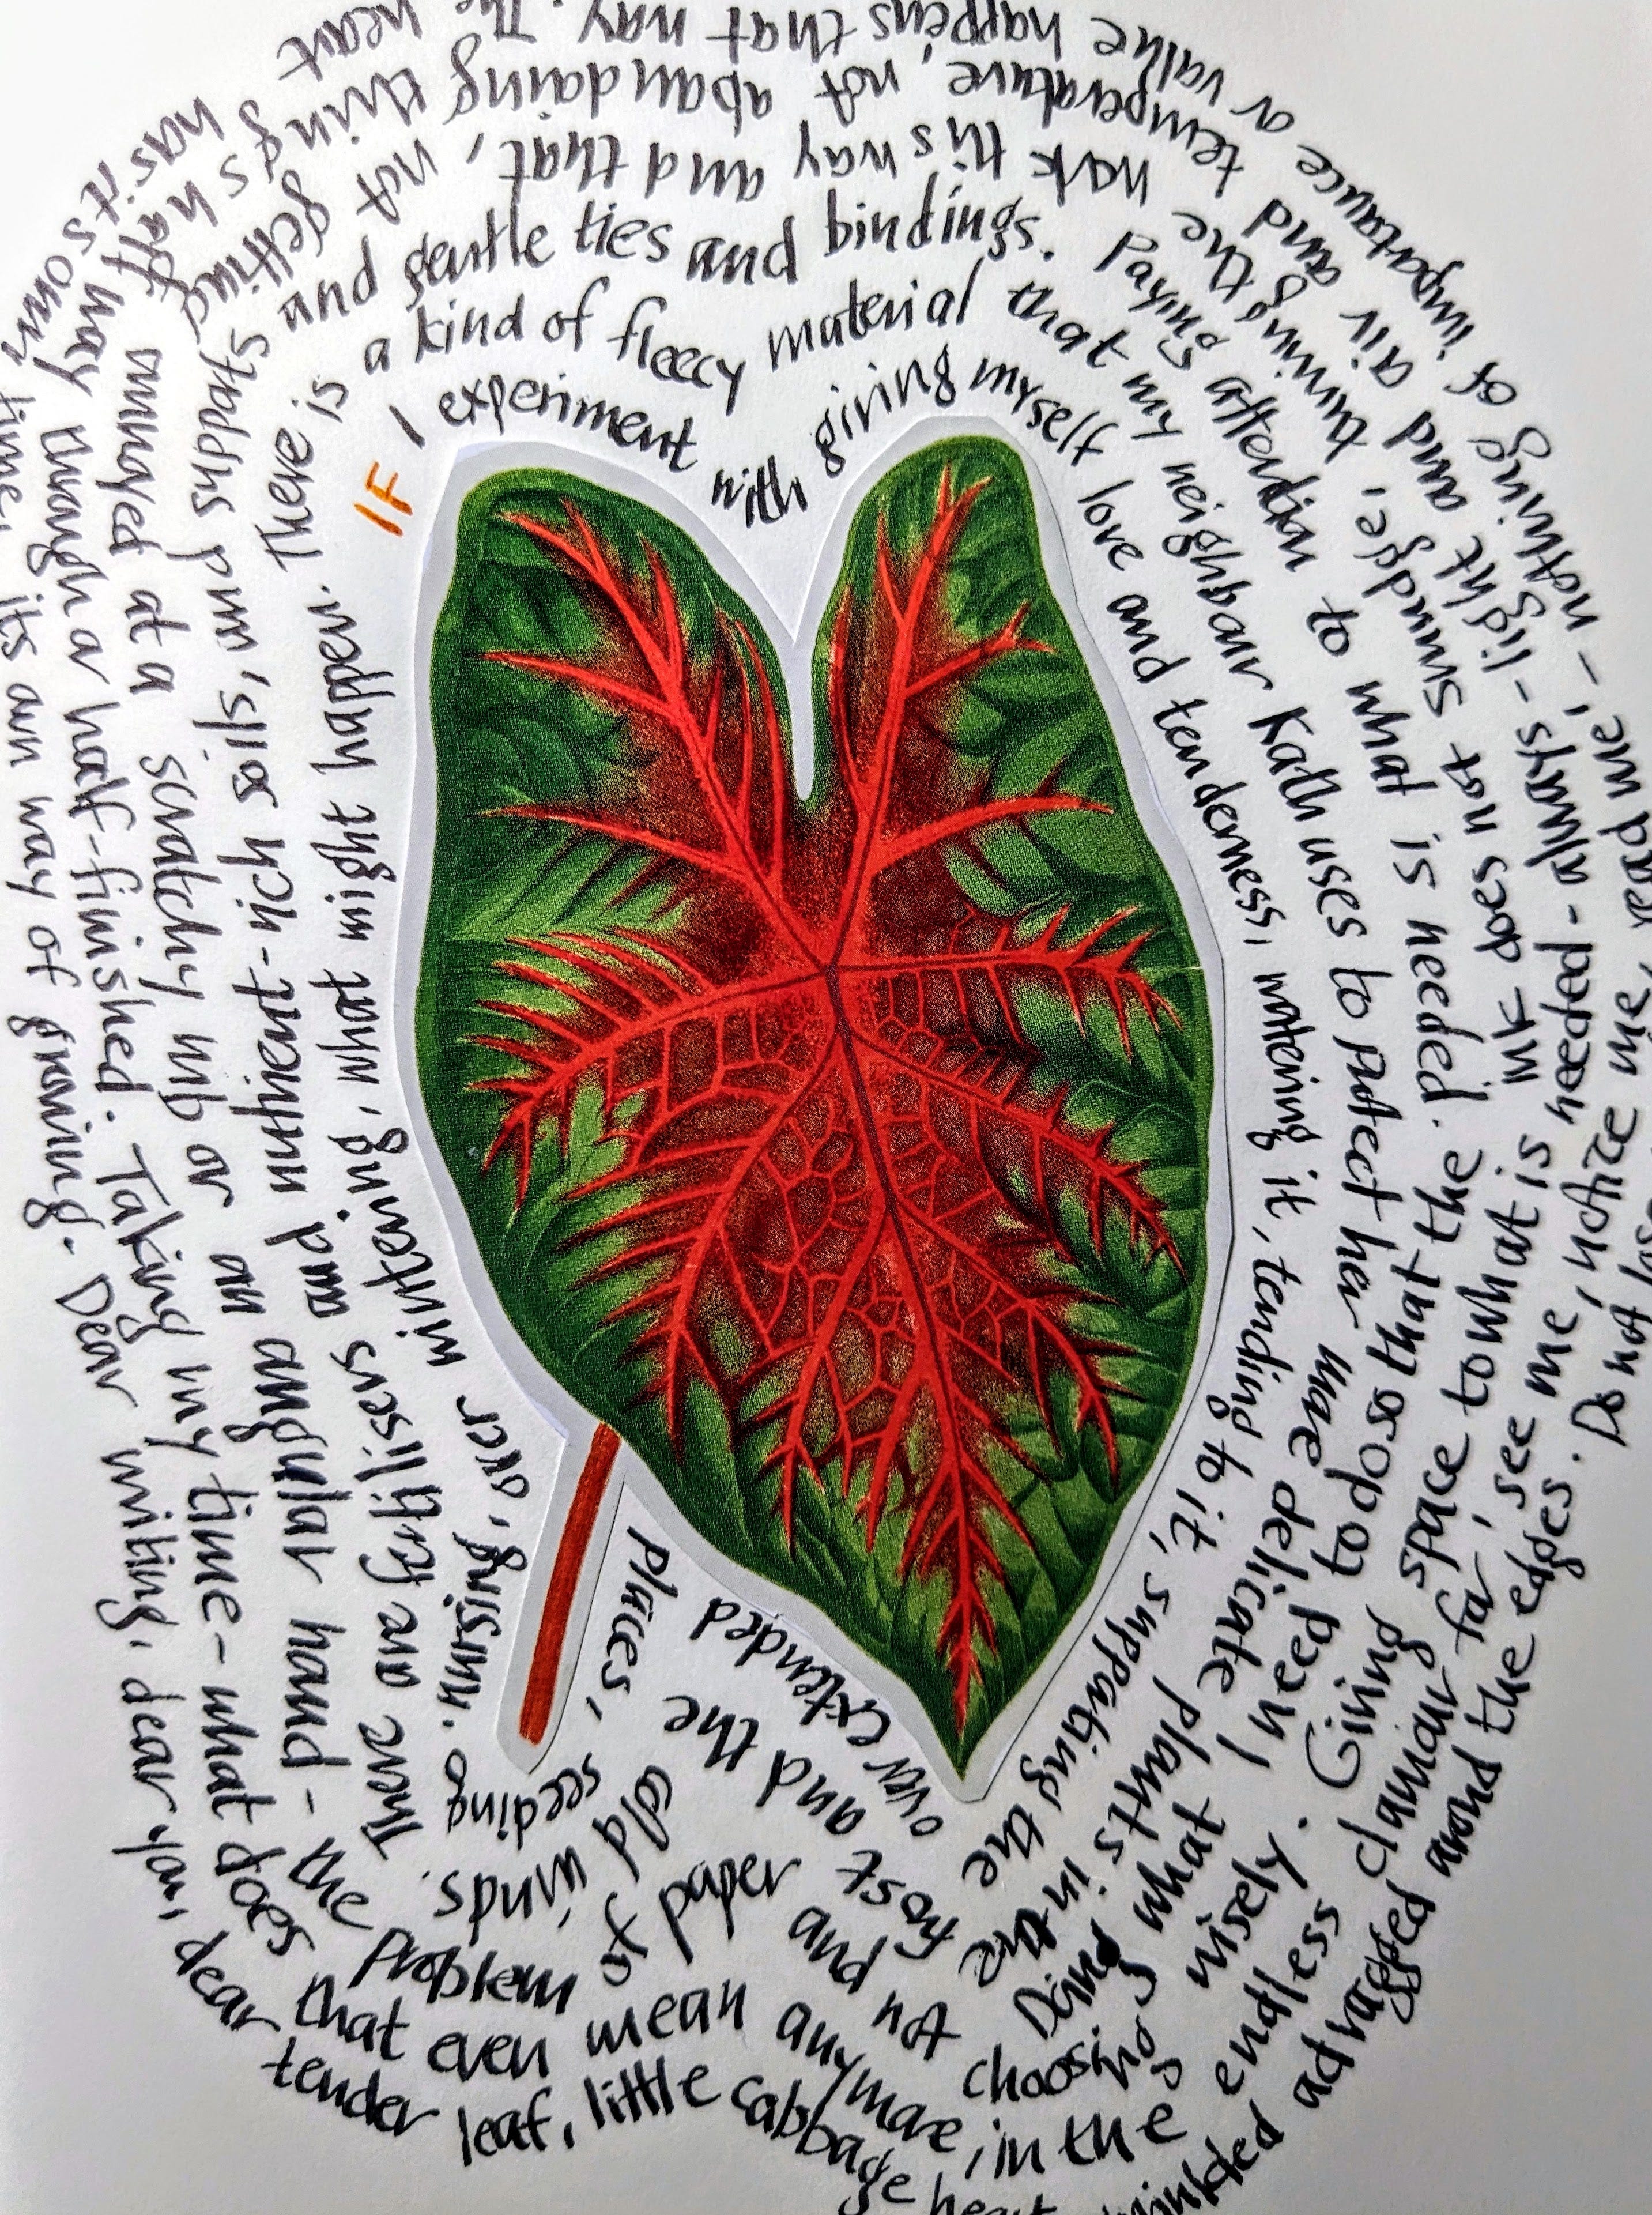 IF I experiment with giving myself love and tenderness, watering it, tending to it, supporting the over extended places, seeding, nursing, over wintering, what might happen.
There is a kind of fleecy material that my neighbour Kath uses to protect her more delicate plants in the frost and the cold winds.
There are fertilisers and nutrient-rich soils, and supports and gentle ties and bindings.
Paying attention to what is needed.
Doing what I need to do so that the ink does not smudge, turning the work this way and that, not getting annoyed at a scratchy nib or an angular hand - the problem of paper and not choosing wisely.
Giving space to what is needed - always - light and air and temperature, not abandoning things half way through a half-finished.
Taking my time - what does that even mean anymore, in the endless clamour for, see me, notice me, read me, - nothing of importance or value happens that way.
The heart has its own time, its own way of growing.
Dear writing, dear you, dear tender leaf, little cabbage heart wrinkled and ragged around the edges.
Do not